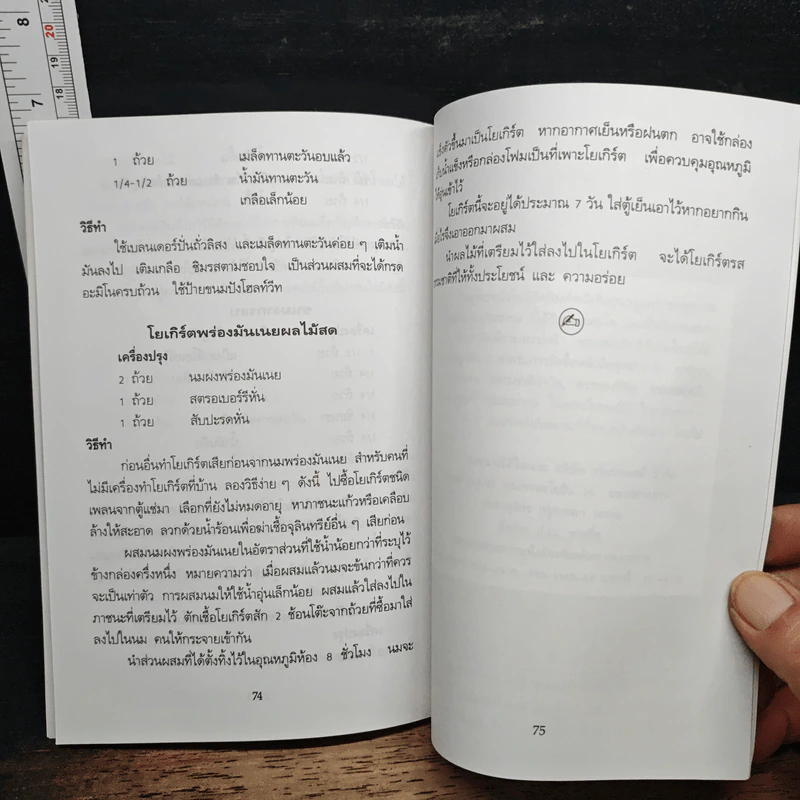 8
20
19
7
18
1 ถ้วย เมล็ดทานตะวันอบแล้ว
1/4-1/2 ถ้วย น้ำมันทานตะวัน
เกลือเล็กน้อย
วิธีทำ
ใช้เบลนเดอร์ปั่นถั่วลิสง และเมล็ดทานตะวันค่อย ๆ เติมน้ำ
มันลงไป เติมเกลือ ชิมรสตามชอบใจ เป็นส่วนผสมที่จะได้กรด
อะมิโนครบถ้วน ใช้ป้ายขนมปังโฮลท์วีท
โยเกิร์ตพร่องมันเนยผลไม้สด
เครื่องปรุง
2 ถ้วย นมผงพร่องมันเนย
1 ถ้วย สตรอเบอร์รีหั่น
1 ถ้วย สับปะรดหั่น
วิธีทำ
ก่อนอื่นทำโยเกิร์ตเสียก่อนจากนมพร่องมันเนย สำหรับคนที่
ไม่มีเครื่องทำโยเกิร์ตที่บ้าน ลองวิธีง่าย ๆ ดังนี้ ไปซื้อโยเกิร์ตชนิด
เพลนจากตู้แช่มา เลือกที่ยังไม่หมดอายุ หาภาชนะแก้วหรือเคลือบ
ล้างให้สะอาด ลวกด้วยน้ำร้อนเพื่อฆ่าเชื้อจุลินทรีย์อื่น ๆ เสียก่อน
ผสมนมผงพร่องมันเนยในอัตราส่วนที่ใช้น้ำน้อยกว่าที่ระบุไว้
ข้างกล่องครึ่งหนึ่ง หมายความว่า เมื่อผสมแล้วนมจะข้นกว่าที่ควร
จะเป็นเท่าตัว การผสมนมให้ใช้น้ำอุ่นเล็กน้อย ผสมแล้วใส่ลงไปใน
ภาชนะที่เตรียมไว้ ตักเชื้อโยเกิร์ตสัก 2 ช้อนโต๊ะจากถ้วยที่ซื้อมาใส่
ลงไปในนม คนให้กระจายเข้ากัน
นำส่วนผสมที่ได้ตั้งทิ้งไว้ในอุณหภูมิห้อง 8 ชั่วโมง นมจะ
74
ตัวขึ้นมาเป็นโยเกิร์ต หากอากาศเย็นหรือฝนตก อาจใช้กล่อง
น้ำแข็งหรือกล่องโฟมเป็นที่เพาะโยเกิร์ต เพื่อควบคุมอุณหภูมิ
ให้อุ่นเข้าไว้
โยเกิร์ตนี้จะอยู่ได้ประมาณ 7 วัน ใส่ตู้เย็นเอาไว้หากอยากกิน
จึงเอาออกมาผสม
นำผลไม้ที่เตรียมไว้ใส่ลงไปในโยเกิร์ต จะได้โยเกิร์ตรส
ธรรมชาติที่ให้ทั้งประโยชน์ และ ความอร่อย
75